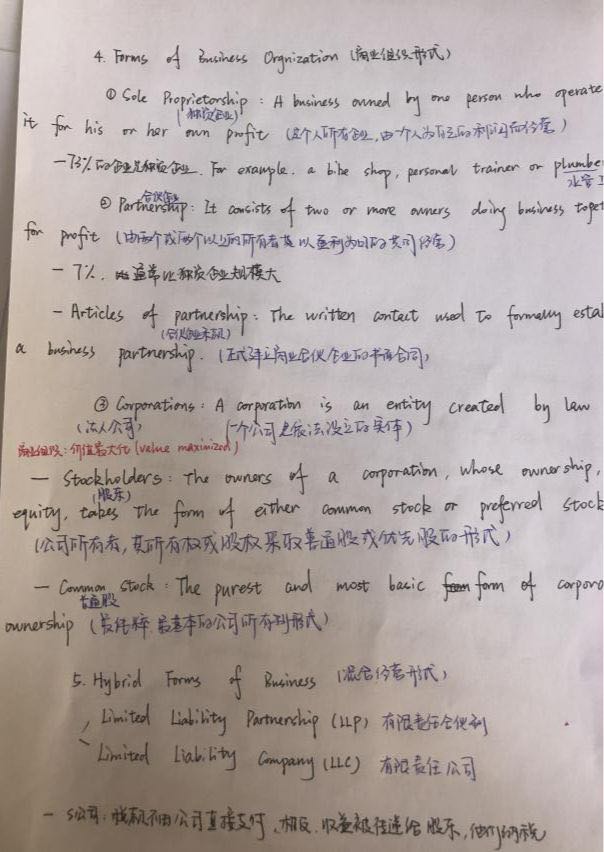 4. Forms of Business Orgnization (商业组织形式)
① Sole Proprietorship : A business owned by one person who operate
(独资企业)
it for his or her own profit (这个人所有企业,由一个人为自己的利润而经营)
-73%的企业是独资企业. For example, a bike shop, personal trainer or plumbe
水管工
合伙企业
② Partnership: It consists of two or more owners doing business toget
for profit (由两个或两个以上的所有者以盈利为目的共同经营)
- 7%. 通常比独资企业规模大
- Articles of partnership: The written contact used to formally estal
(合伙企业条款)
a business partnership. (正式建立商业合伙企业的书面合同)
③ Corporations: A corporation is an entity created by law
(法人公司) (一个公司是依法设立的实体)
商业组织: 价值最大化 (value maximized)
- Stockholders: The owners of a corporation, whose ownership,
(股东)
equity, takes the form of either common stock or preferred stock
(公司所有者,其所有权或股权采取普通股或优先股的形式)
- Common Stock: The purest and most basic form of corpora
普通股
ownership (最纯粹,最基本的公司所有制形式)
5. Hybrid Forms of Business (混合经营形式)
Limited Liability Partnership (LLP) 有限责任合伙制
Limited Liability Company (LLC) 有限责任公司
- S公司: 税款不由公司直接支付,相反,收益被传递给股东,他们纳税